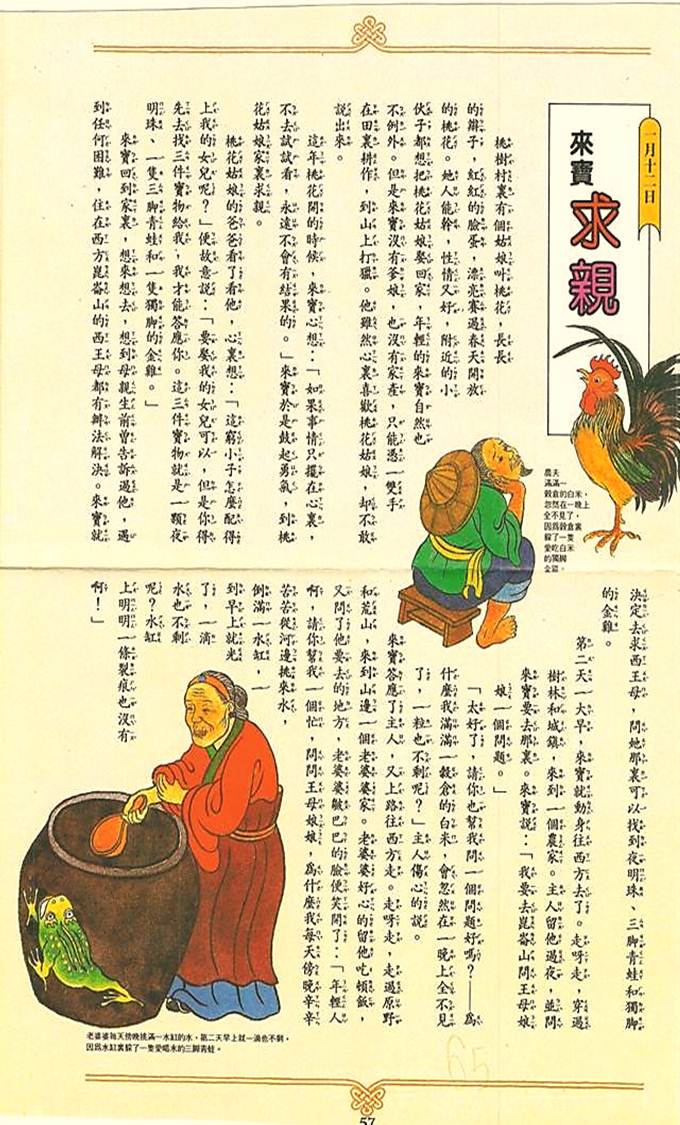 一月十二日
來寶
求親
桃樹村裏有個姑娘叫桃花，長長
的辮子，紅紅的臉蛋，漂亮賽過春天開放
的桃花。她人能幹，性情又好，附近的小
伙子都想把桃花姑娘娶回家，年輕的來寶自然也
不例外。但是來寶沒有爹娘，也沒有家產，只能憑一雙手
在田裏耕作，到山上打獵。他雖然心裏喜歡桃花姑娘，却不敢
說出來。
這年桃花開的時候，來寶心想：「如果事情只擺在心裏，
不去試試看，永遠不會有結果的。」來寶於是鼓起勇氣，到桃
花姑娘家裏求親。
桃花姑娘的爸爸看了看他，心裏想：「這窮小子怎麼配得
上我的女兒呢？」便故意說：「要娶我的女兒可以，但是你得
先去找三件寶物給我，我才能答應你。這三件寶物就是一顆夜
明珠、一隻三脚青蛙和一隻獨脚的金雞。」
來寶回到家裏，想來想去，想到母親生前曾告訴過他，遇
到任何困難，住在西方崑崙山的西王母都有辦法解決。來寶就
農夫
滿滿一
穀倉的白米，
忽然在一晚上
全不見了，
因爲穀倉裏
躲了一隻
愛吃白米
的獨脚
金雞。
決定去求西王母，問她那裏可以找到夜明珠、三脚青蛙和獨脚
的金雞。
第二天一大早，來寶就動身往西方去了。走呀走，穿過
樹林和城鎮，來到一個農家。主人留他過夜，並問
來寶要去那裏。來寶說：「我要去崑崙山問王母娘
娘一個問題。」
「太好了，請你也幫我問一個問題好嗎？——爲
什麼我滿滿一穀倉的白米，會忽然在一晚上全不見
了，一粒也不剩呢？」主人傷心的說。
來寶答應了主人，又上路往西方走。走呀走，走過原野
和荒山，來到山邊一個老婆婆家。老婆婆好心的留他吃頓飯，
又問了他要去的地方，老婆婆皺巴巴的臉便笑開了：「年輕人
啊，請你幫我一個忙，問問王母娘娘，爲什麼我每天傍晚辛辛
苦苦從河邊挑來水，
倒滿一水缸，一
到早上就光
了，一滴
水也不剩
呢？水缸
上明明一條裂痕也沒有
啊！」
老婆婆每天傍晚挑滿一水缸的水，第二天早上就一滴也不剩，
因爲水缸裏躲了一隻愛喝水的三脚青蛙。
65
57